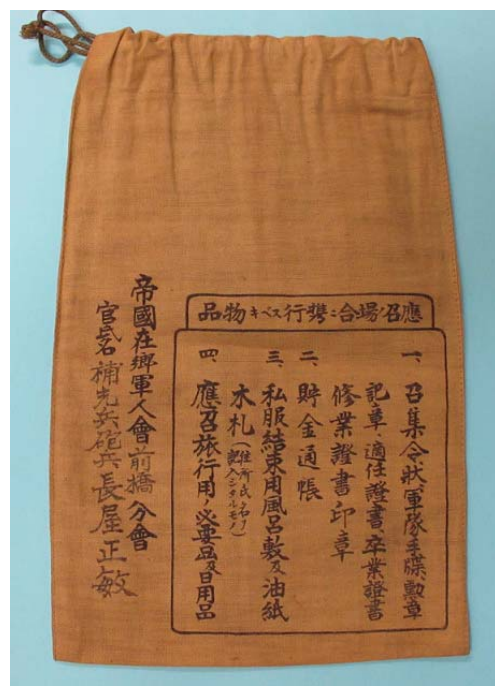 應召ノ場合ニ携行スベキ物品
一、召集令狀軍隊手牒、勲章
記章、適任證書、卒業證書
修業證書印章
二、貯金通帳
三、私服結束用風呂敷及油紙
木札(住所氏名ヲ記入シタルモノ)
四、應召旅行用ノ必要品及日用品
帝國在郷軍人會前橋分會
官氏名補充兵砲兵長屋正敏